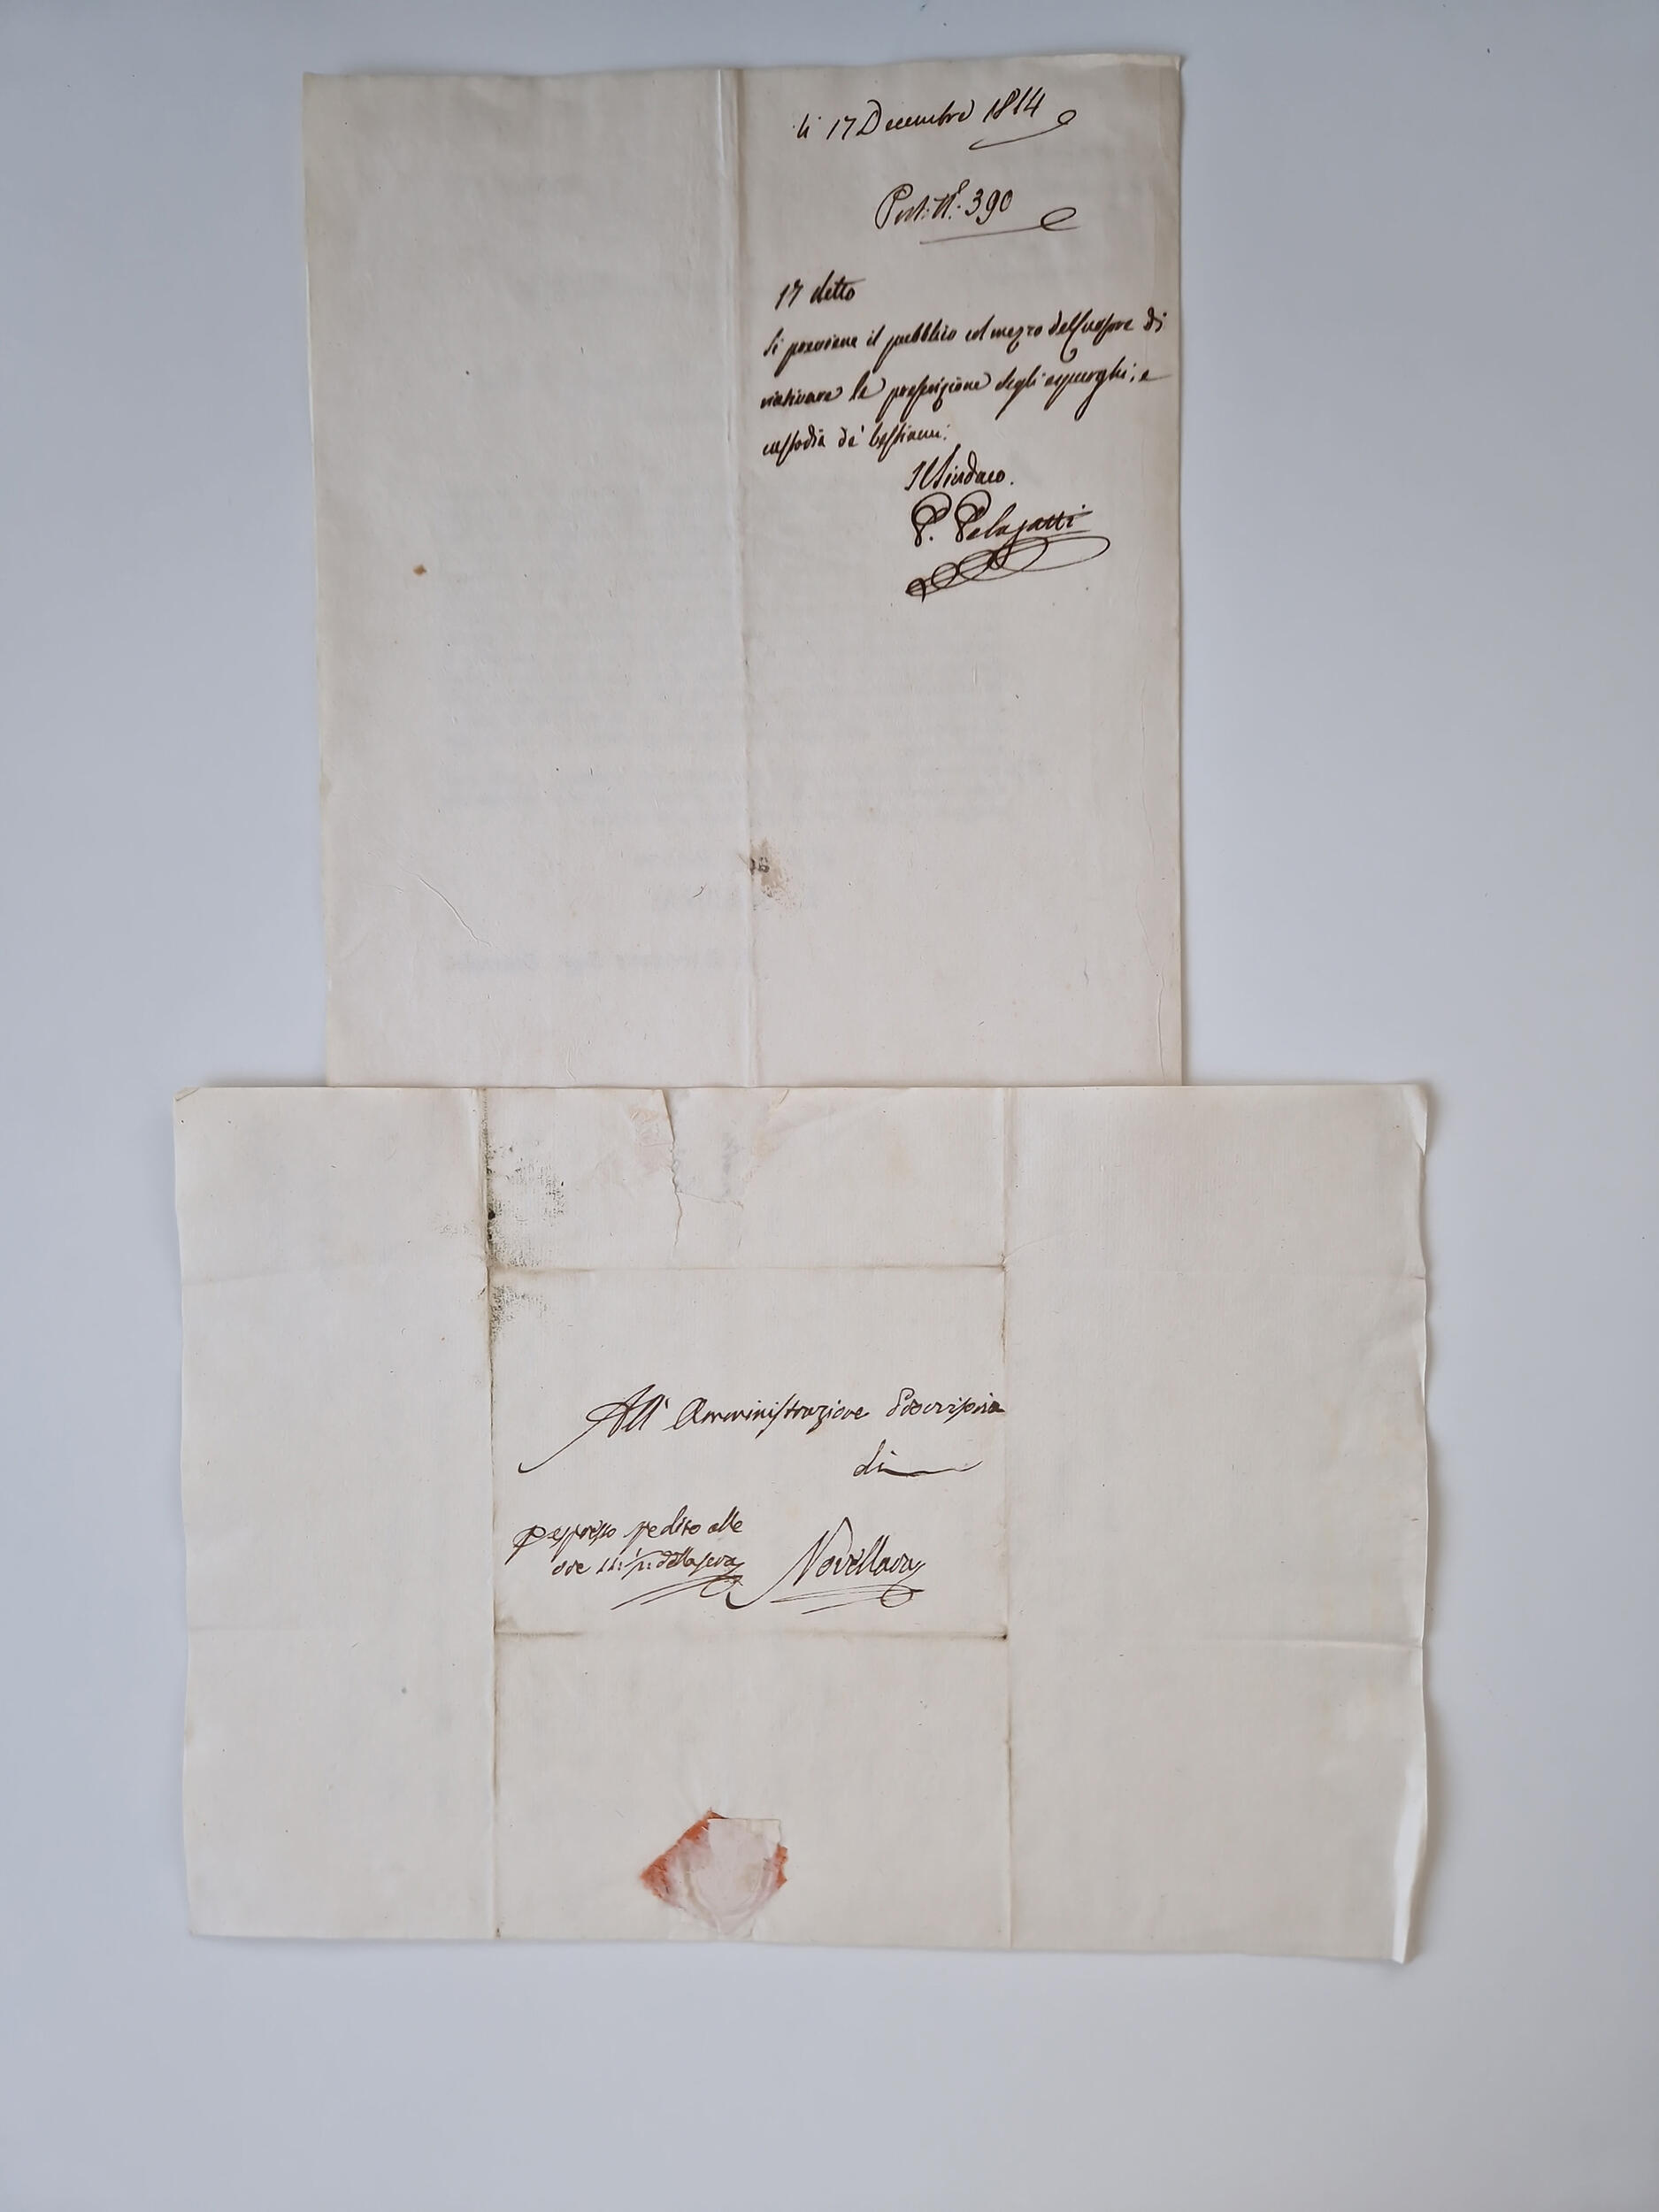 li 17 Decembre 1814
Prot: N.º 390
17 detto
Si previene il pubblico col mezzo dell' di
riativare la prescrizione degli espurghi, e
custodia de' bestiami.
Il Sindaco.
P. Pelagatti
All' Amministrazione Provisoria
di
Novellara
P espresso spedito alle
ore 11: della sera